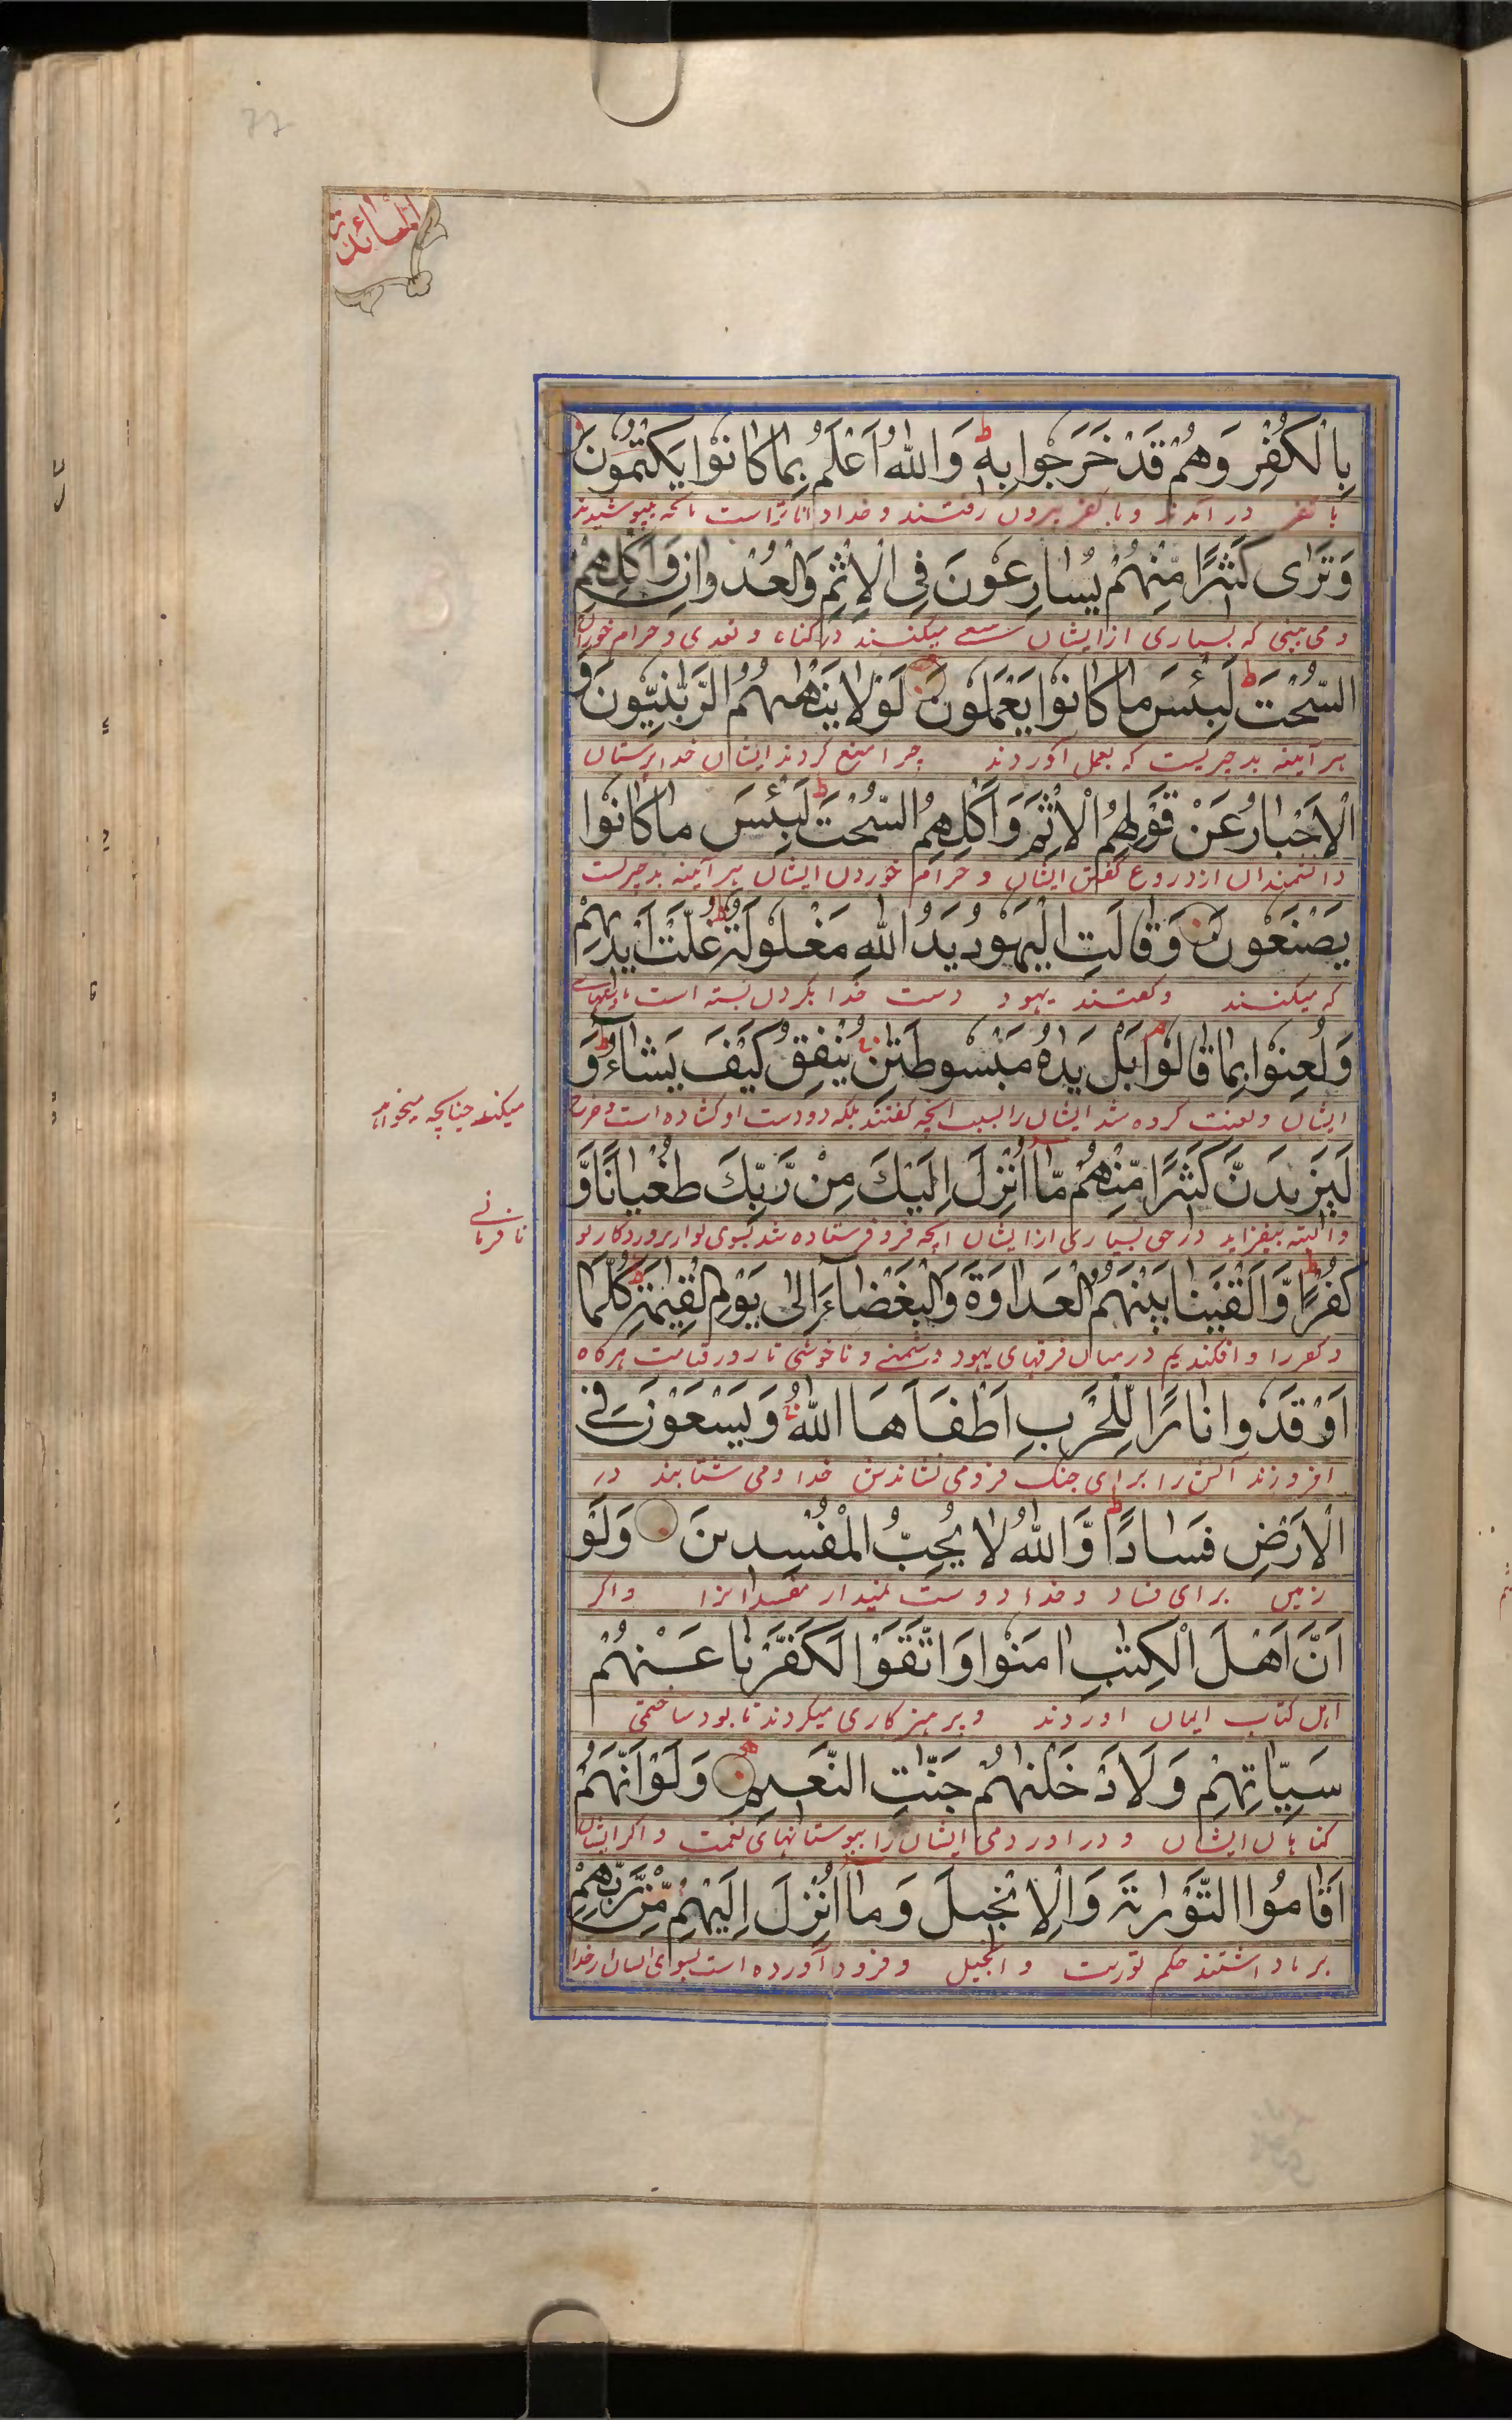 المائدة
بِالْكُفْرِ وَهُمْ قَدْ خَرَجُوا بِهٖ ط وَاللّٰهُ اَعْلَمُ بِمَا كَانُوْا يَكْتُمُوْنَ
با کفر در آمدند و با کفر بیرون رفتند و خدا داناتر است بانچه میپوشیدند
وَتَرٰى كَثِيْرًا مِّنْهُمْ يُسَارِعُوْنَ فِى الْاِثْمِ وَالْعُدْوَانِ وَاَكْلِهِمُ
و می بینی که بسیاری از ایشان سعی میکنند در گناه و تعدی و حرام خوردن
السُّحْتَ ط لَبِئْسَ مَا كَانُوْا يَعْمَلُوْنَ لَوْلَا يَنْهٰىهُمُ الرَّبّٰنِيُّوْنَ وَ
هر آینه بد چیزیست که بعمل آوردند چرا منع کردند ایشان خدا پرستان
الْاَحْبَارُ عَنْ قَوْلِهِمُ الْاِثْمَ وَاَكْلِهِمُ السُّحْتَ ط لَبِئْسَ مَا كَانُوْا
دانشمندان از دروغ گفتن ایشان و حرام خوردن ایشان هر آینه بد چیزیست
يَصْنَعُوْنَ وَقَالَتِ الْيَهُوْدُ يَدُ اللّٰهِ مَغْلُوْلَةٌ ط غُلَّتْ اَيْدِيْهِمْ
که میکنند و گفتند یهود دست خدا بگردن بسته است
وَلُعِنُوْا بِمَا قَالُوْا م بَلْ يَدٰهُ مَبْسُوْطَتٰنِ يُنْفِقُ كَيْفَ يَشَآءُ ط وَ
ایشان و لعنت کرده شد ایشان را بسبب آنچه گفتند بلکه دو دست او گشاده است و خرچ
میکند چنانچه میخواهد
لَيَزِيْدَنَّ كَثِيْرًا مِّنْهُمْ مَّا اُنْزِلَ اِلَيْكَ مِنْ رَّبِّكَ طُغْيَانًا وَّ
و البته بیفزاید در حق بسیاری از ایشان آنچه فرو فرستاده شد بسوی تو از پروردگار تو
نافرمانی
كُفْرًا ط وَّاَلْقَيْنَا بَيْنَهُمُ الْعَدَاوَةَ وَالْبَغْضَآءَ اِلٰى يَوْمِ الْقِيٰمَةِ ط كُلَّمَا
و کفر را و افکندیم در میان فرقهای یهود دشمنی و ناخوشی تا روز قیامت هرگاه
اَوْقَدُوْا نَارًا لِّلْحَرْبِ اَطْفَاَهَا اللّٰهُ وَيَسْعَوْنَ فِى
افروزند آتش را برای جنگ فرو می نشاندش خدا و می شتابند در
الْاَرْضِ فَسَادًا ط وَّاللّٰهُ لَا يُحِبُّ الْمُفْسِدِيْنَ وَلَوْ
زمین برای فساد و خدا دوست نمیدارد مفسدانرا و اگر
اَنَّ اَهْلَ الْكِتٰبِ اٰمَنُوْا وَاتَّقَوْا لَكَفَّرْنَا عَنْهُمْ
اهل کتاب ایمان آوردند و پرهیزکاری میکردند نابود ساختمی
سَيِّاٰتِهِمْ وَلَاَدْخَلْنٰهُمْ جَنّٰتِ النَّعِيْمِ وَلَوْ اَنَّهُمْ
گناهان ایشان و در آوردمی ایشان را ببوستانهای نعمت و اگر ایشان
اَقَامُوا التَّوْرٰىةَ وَالْاِنْجِيْلَ وَمَا اُنْزِلَ اِلَيْهِمْ مِّنْ رَّبِّهِمْ
برپا داشتند حکم توریت و انجیل و فرود آورده است بسوی ایشان از خدا